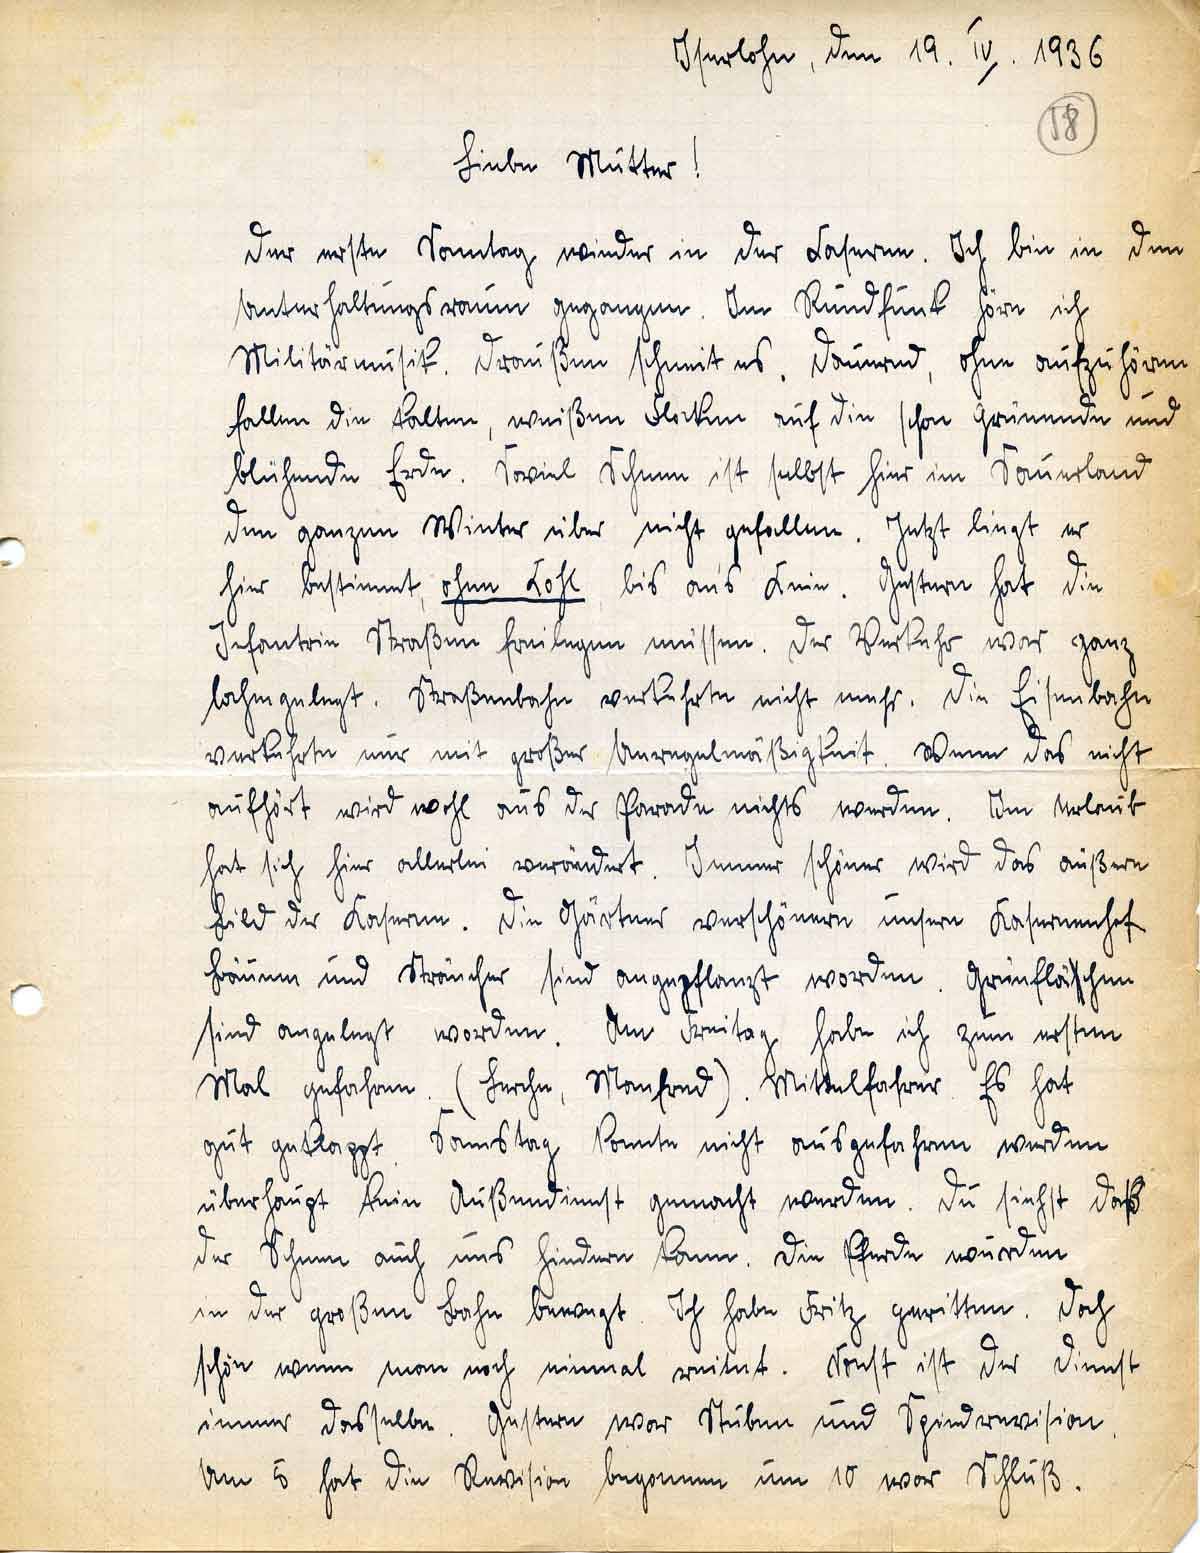 Iserlohn, den 19. IV. 1936
58
Liebe Mutter!
Der erste Sonntag wieder in der Kaserne. Ich bin in den
Unterhaltungsraum gegangen. Im Rundfunk höre ich
Militärmusik. Draußen schneit es. Dauernd, ohne aufzuhören
fallen die kalten, weißen Flocken auf die schon grünende und
blühende Erde. Soviel Schnee ist selbst hier im Sauerland
den ganzen Winter über nicht gefallen. Jetzt liegt er
hier bestimmt, ohne Kohl, bis ans Knie. Gestern hat die
Infantrie Straßen freilegen müssen. Der Verkehr war ganz
lahmgelegt. Straßenbahn verkehrte nicht mehr. Die Eisenbahn
verkehrte nur mit großer Unregelmäßigkeit. Wenn das nicht
aufhört wird wohl aus der Parade nichts werden. Im Urlaub
hat sich hier allerlei verändert. Immer schöner wird das äußere
Bild der Kaserne. Die Gärtner verschönern unsere Kasernenhof
Bäume und Sträucher sind angepflanzt worden. Grünflächen
sind angelegt worden. Am Freitag habe ich zum ersten
Mal gefahren. (Lerche, Manfred). Mittelfahrer. Es hat
gut geklappt. Samstag konnte nicht ausgefahren werden
überhaupt kein Außendienst gemacht werden. Du siehst daß
der Schnee auch uns hindern kann. Die Pferde wurden
in der großen Bahn bewegt. Ich habe Fritz geritten. Doch
schön wenn man noch einmal reitet. Sonst ist der Dienst
immer dasselbe. Gestern war Stuben und Spindrevision.
Um 5 hat die Revision begonnen um 10 war Schluß.